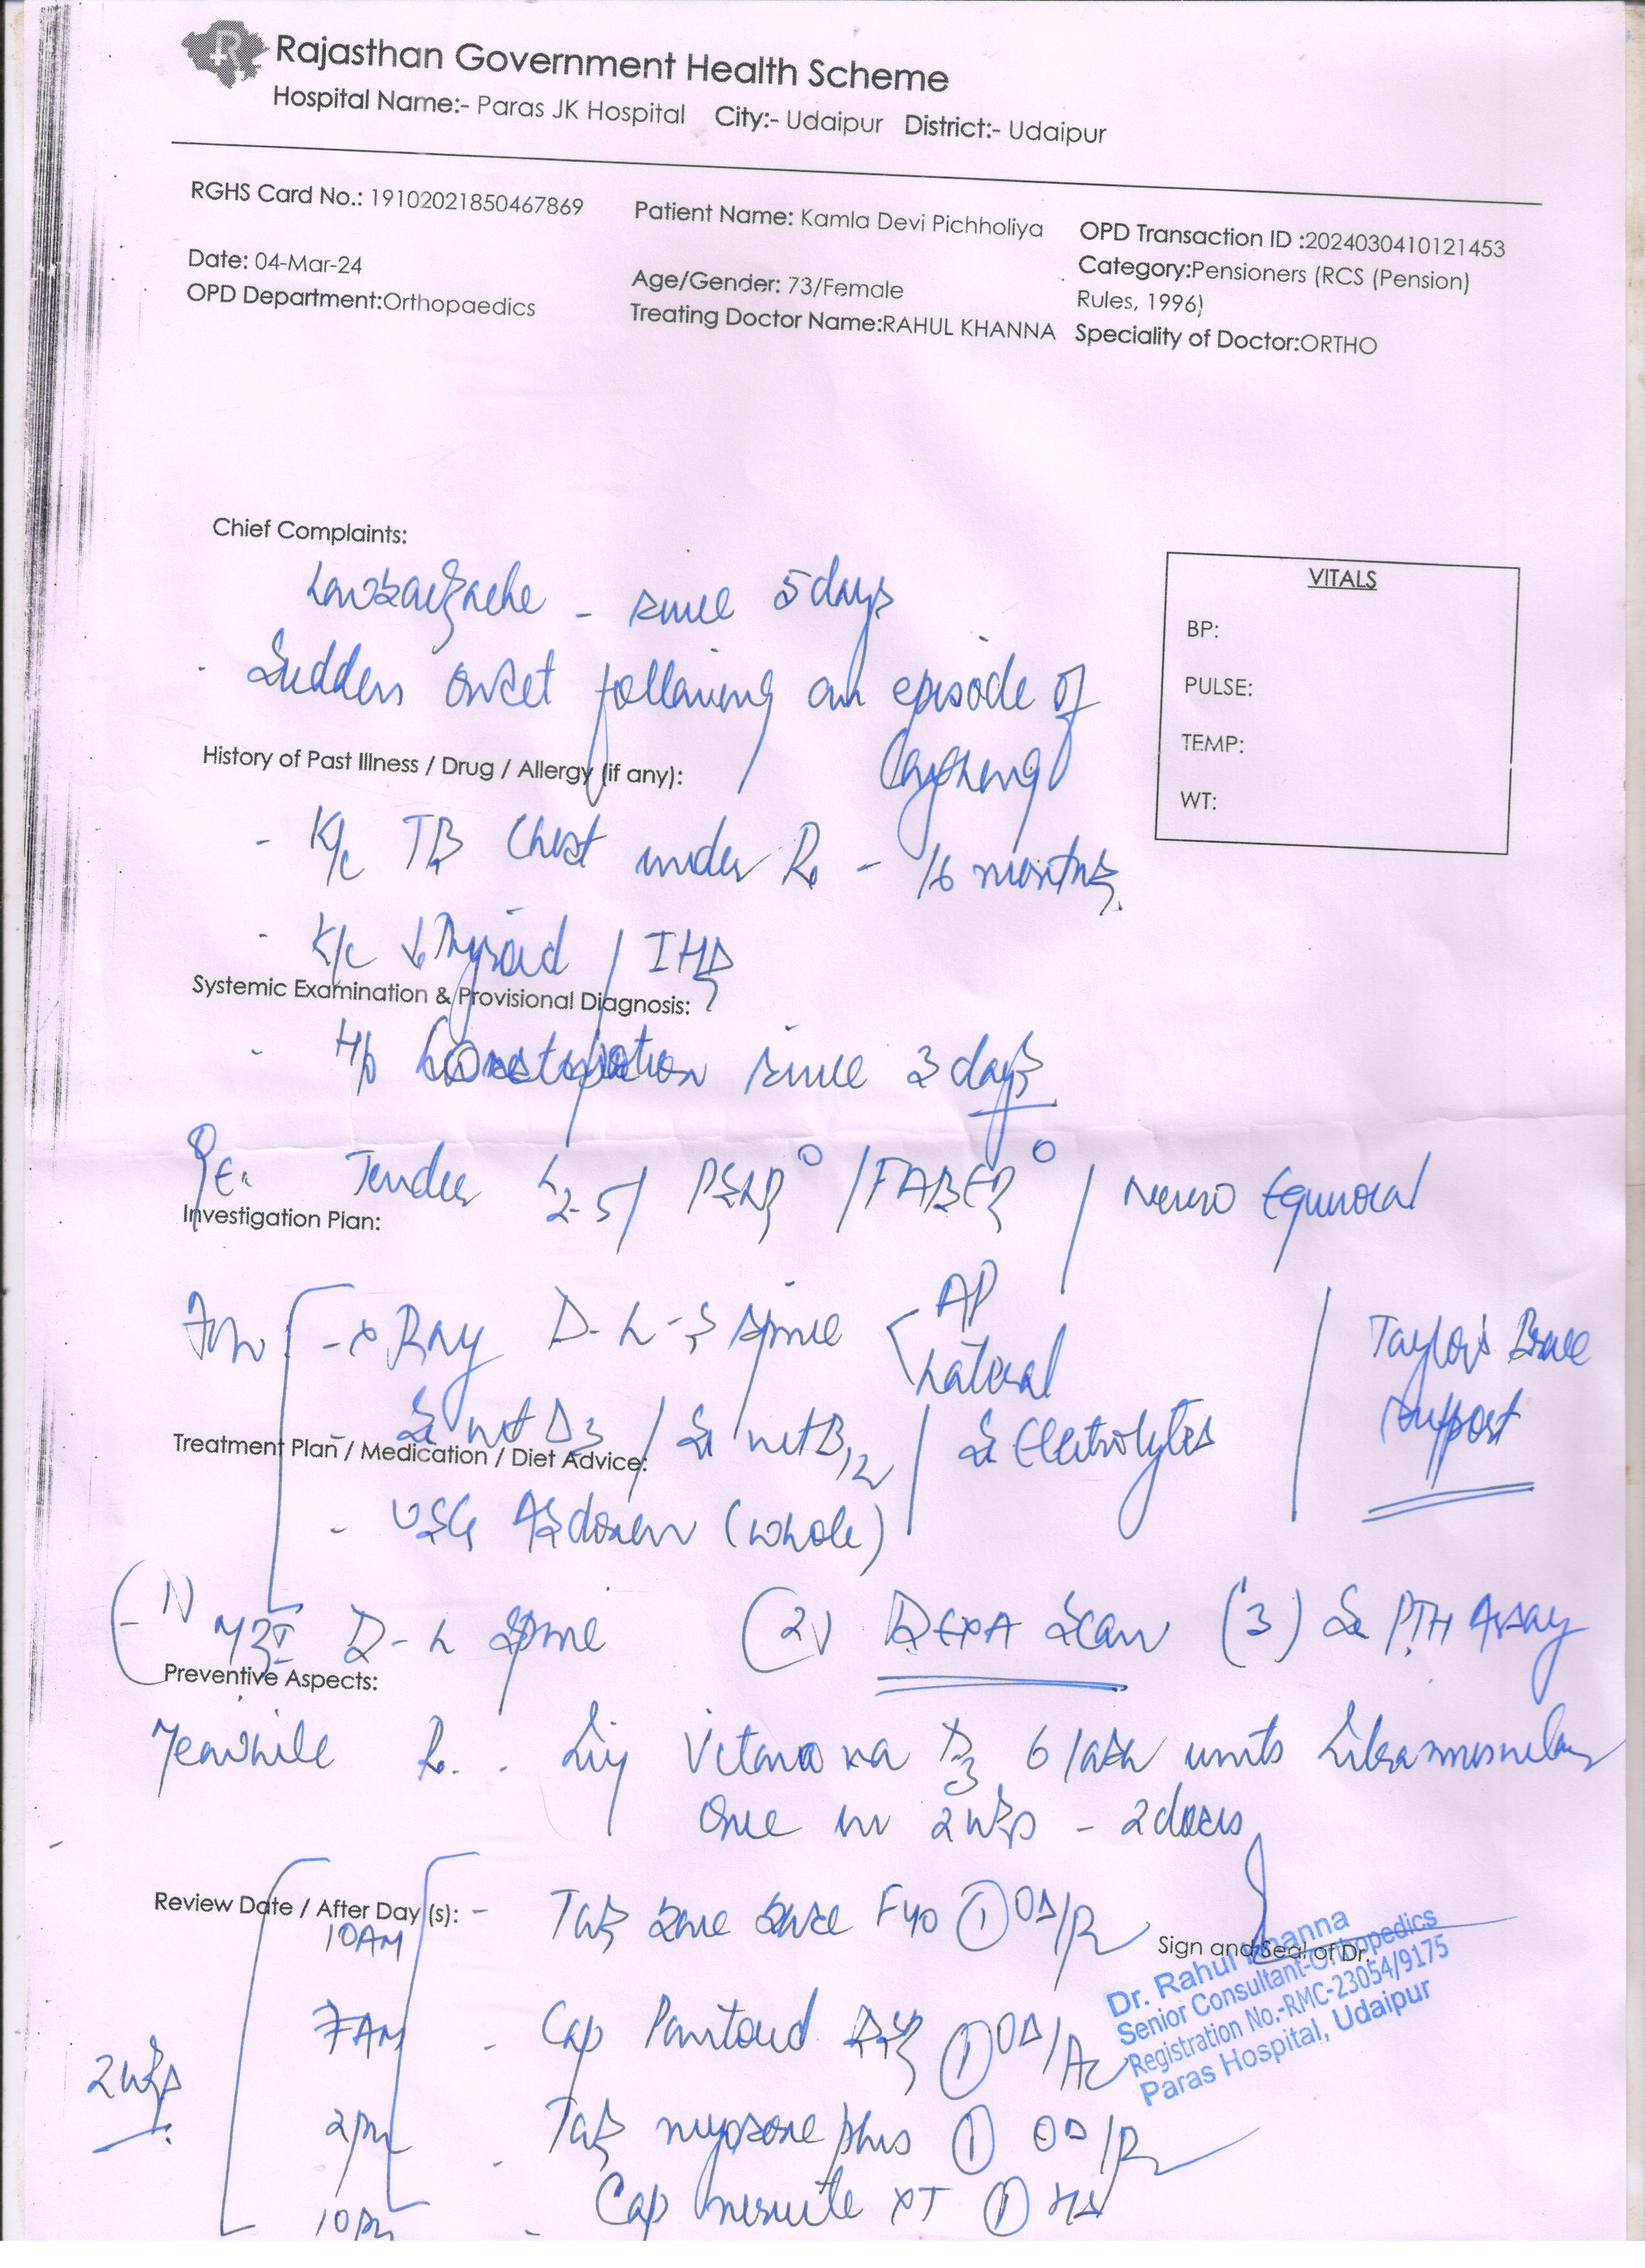 Rajasthan Government Health Scheme
Hospital Name:- Paras JK Hospital City:- Udaipur District:- Udaipur
RGHS Card No.: 19102021850467869 Patient Name: Kamla Devi Pichholiya OPD Transaction ID :2024030410121453
Date: 04-Mar-24 Age/Gender: 73/Female Category:Pensioners (RCS (Pension) Rules, 1996)
OPD Department:Orthopaedics Treating Doctor Name:RAHUL KHANNA Speciality of Doctor:ORTHO
Chief Complaints:
Lowbackache - since 5 days
VITALS
BP:
PULSE:
TEMP:
WT:
Sudden onset following an episode of
Coughing
History of Past Illness / Drug / Allergy (if any):
- K/c TB Chest under Rx - 16 months
- K/c ↓Thyroid / IHD
Systemic Examination & Provisional Diagnosis:
- H/o Constipation since 3 days
O/E: Tender L2-5 / / FABER° / Neuro Equivocal
Investigation Plan:
- X Ray D-L-S spine AP
Lateral
Taylor's Brace
support
- Se vit D3 / Se vit B12 / Se Electrolytes
Treatment Plan / Medication / Diet Advice:
- USG Abdomen (whole)
1) MRI D-L Spine (2) DEXA Scan (3) Se PTH Assay
Preventive Aspects:
Meanwhile Rx. Inj D3 6 lakh units Intramuscular
Once in 2 wks - 2 doses
Review Date / After Day (s): -
10AM Tab F40 ① OD/
Sign and Seal of Dr.
Dr. Rahul Khanna
Senior Consultant-Orthopedics
Registration No.-RMC-23054/9175
Paras Hospital, Udaipur
7AM - Cap ① OD/Ac
2wks
2pm - Tab plus ① OD/
10pm - Cap XT ① HS